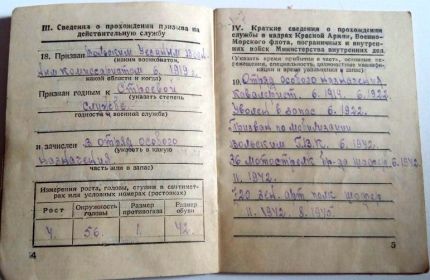 III. Сведения о прохождении призыва на
действительную службу
18. Призван Вольским Уездным Воен-
(каким военкоматом,
ным комиссариатом 6.1919 г.
какой области и когда)
Признан годным к Строевой
(указать степень
Службе
годности к военной службе)
и зачислен в отряд особого
(указать в какую
назначения
часть)
Измерения роста, головы, ступни в сантимет-
рах или условных номерах (ростовках)
Рост Окружность головы Размер противогаза Размер обуви
4. 56. 1. 42.
4
IV. Краткие сведения о прохождении
службы в кадрах Красной Армии, Военно-
Морского флота, пограничных и внутрен-
них войск Министерства внутренних дел.
(Указать время прибытия в часть, основные пе-
ремещения, специальность, должностные квалифи-
кации и время увольнения в запас)
19. Отряд особого назначения
кавалерист 6.1919. 6.1922.
Уволен в запас 6.1922.
Призван по мобилизации
Вольским ГВК. 6.1942.
36 мотострелк. шофер 6.1942
11.1942.
720 зен. арт полк шофер
11.1942. 8.1945.
5